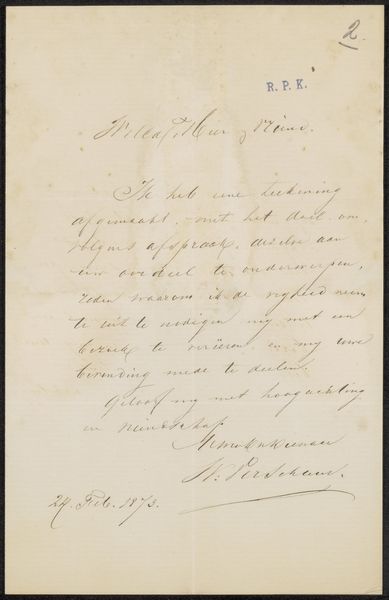 2
R. P. K.
Ik heb eene teekening
afgemaakt, met het doel om
volgens afspraak, dezelve aan
uw oordeel te onderwerpen,
reden waarom ik de vrijheid neem
te uit te nodigen my met een
bezoek te vereeren en my uwe
bevinding mede te deelen.
Geloof my met hoogachting
en vriendschap
24 Feb. 1873.